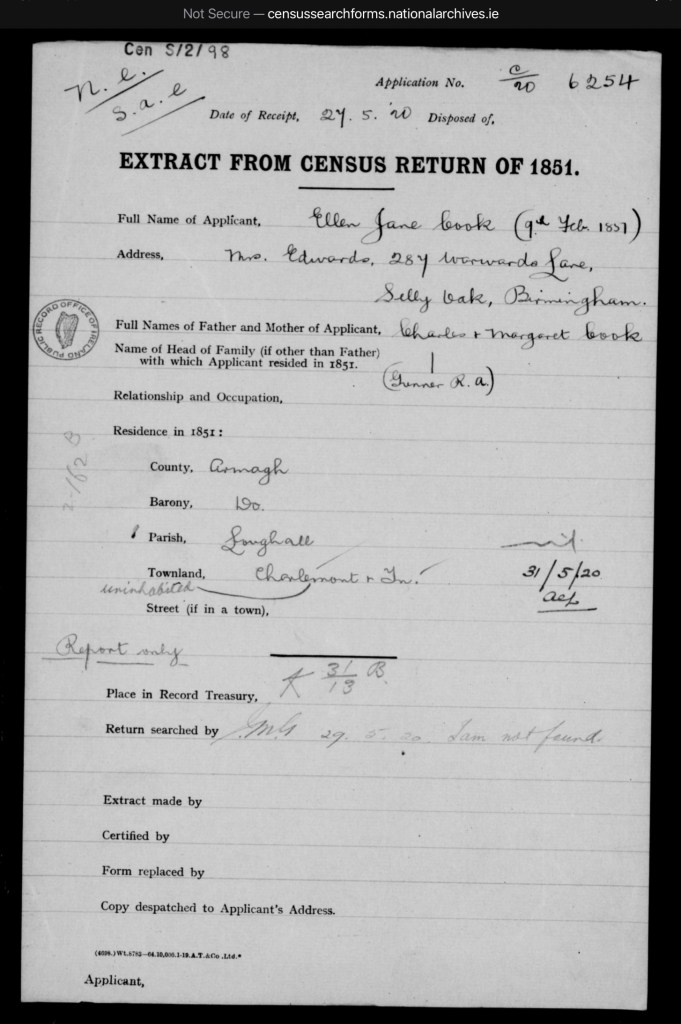 Not Secure — censussearchforms.nationalarchives.ie
Cen S/2/98
n.e.
s.a.e
Application No. C/20 6254
Date of Receipt, 27. 5. '20 Disposed of,
EXTRACT FROM CENSUS RETURN OF 1851.
Full Name of Applicant, Ellen Jane Cook (9th Feb. 1851)
Address, Mrs. Edwards, 287 Warwards Lane,
Selly Oak, Birmingham.
PUBLIC RECORD OFFICE OF IRELAND
Full Names of Father and Mother of Applicant, Charles & Margaret Cook
Name of Head of Family (if other than Father)
with which Applicant resided in 1851.
(Gunner R.A.)
Relationship and Occupation,
Residence in 1851:
County, Armagh
Barony, Do.
Parish, Loughall
nil
Townland, Charlemont & Tn.
31/5/20
uninhabited
Street (if in a town),
Report only
Place in Record Treasury, 31/13 B.
Return searched by 29. 5. 20. Fam not found.
Extract made by
Certified by
Form replaced by
Copy despatched to Applicant's Address.
(4698.) Wt.8782—64.10,000.1-19.A.T.&Co.,Ltd.*
Applicant,